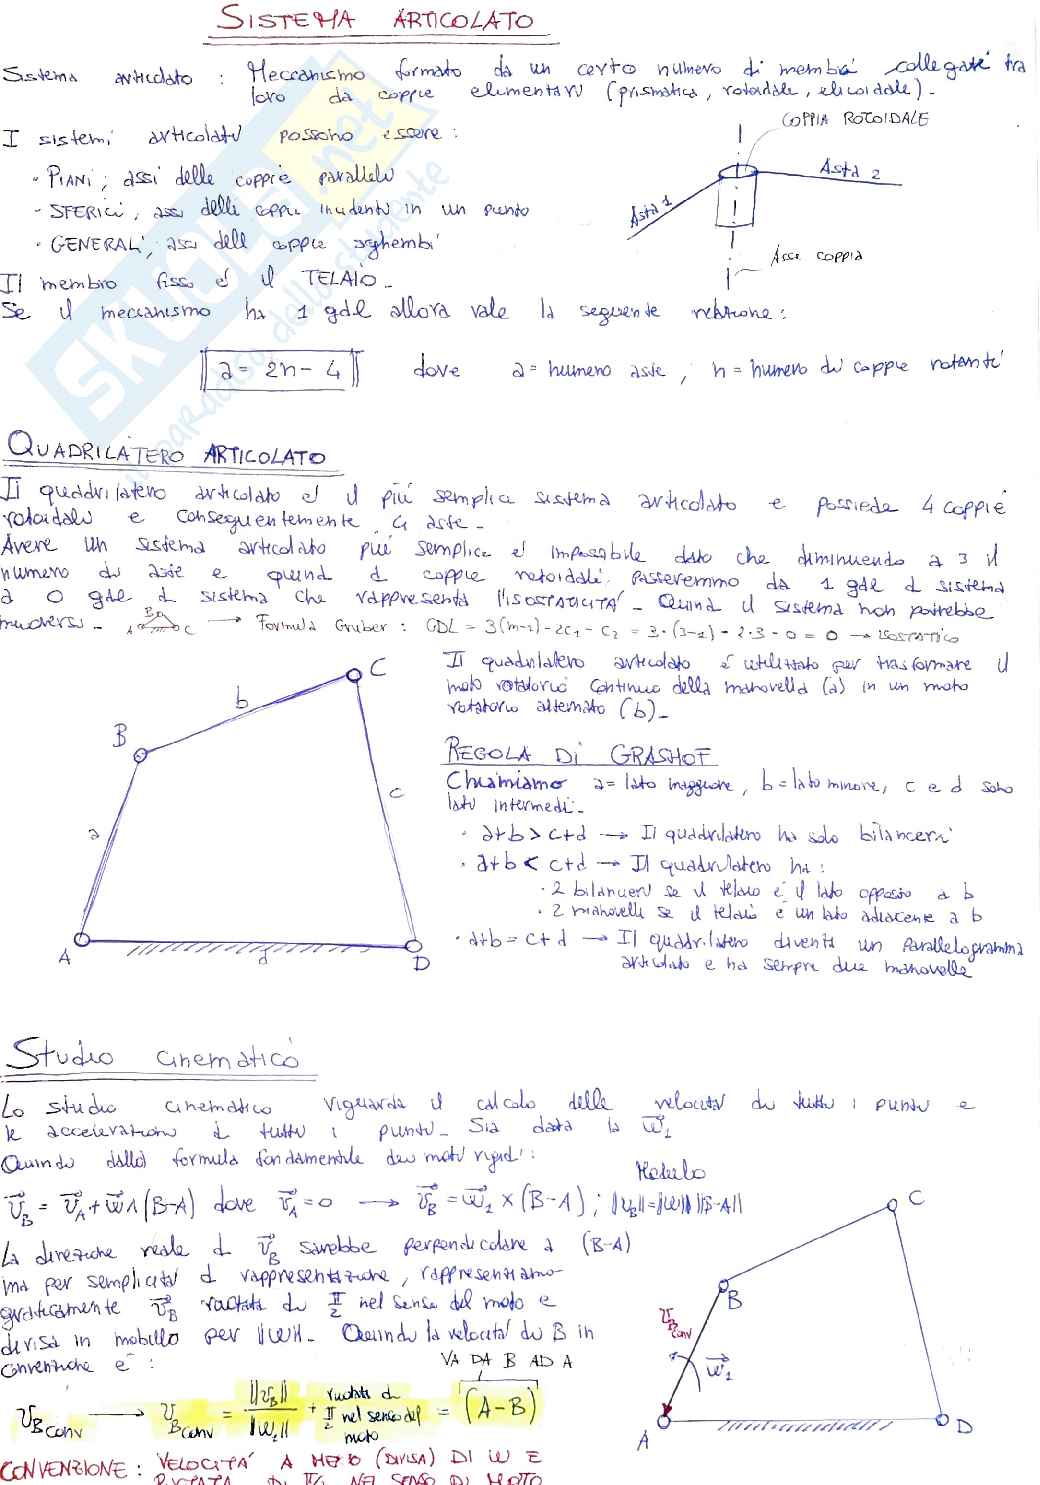 SISTEMA ARTICOLATO
Sistema articolato : Meccanismo formato da un certo numero di membri collegati tra
loro da coppie elementari (prismatica, rotoidale, elicoidale).
I sistemi articolati possono essere :
· PIANI ; assi delle coppie paralleli
· SFERICI ; assi delle coppie incidenti in un punto
· GENERALI ; assi delle coppie sghembi
COPPIA ROTOIDALE
Asta 1
Asta 2
Asse coppia
Il membro fisso è il TELAIO.
Se il meccanismo ha 1 gdl allora vale la seguente relazione :
a = 2n - 4 dove a = numero aste ; n = numero di coppie rotanti
QUADRILATERO ARTICOLATO
Il quadrilatero articolato è il più semplice sistema articolato e possiede 4 coppie
rotoidali e conseguentemente 4 aste.
Avere un sistema articolato più semplice è impossibile dato che diminuendo a 3 il
numero di aste e quindi di coppie rotoidali passeremmo da 1 gdl di sistema
a 0 gdl di sistema che rappresenta l'ISOSTATICITÀ. Quindi il sistema non potrebbe
muoversi. A B C → Formula Gruber : GDL = 3(m-1) - 2C1 - C2 = 3·(3-1) - 2·3 - 0 = 0 → ISOSTATICO
Il quadrilatero articolato è utilizzato per trasformare il
moto rotatorio continuo della manovella (a) in un moto
rotatorio alternato (b).
A B C D
a b c d
REGOLA DI GRASHOF
Chiamiamo a = lato maggiore, b = lato minore, c e d sono
lati intermedi.
· a+b > c+d → Il quadrilatero ha solo bilanceri
· a+b < c+d → Il quadrilatero ha :
· 2 bilanceri se il telaio è il lato opposto a b
· 2 manovelle se il telaio è un lato adiacente a b
· a+b = c+d → Il quadrilatero diventa un parallelogramma
articolato e ha sempre due manovelle
Studio cinematico
Lo studio cinematico riguarda il calcolo delle velocità di tutti i punti e
le accelerazioni di tutti i punti. Sia data la w⃗1
Quindi dalla formula fondamentale dei moti rigidi :
v⃗B = v⃗A + w⃗ ∧ (B-A) dove v⃗A = 0 → v⃗B = w⃗1 × (B-A) ; ||vB|| = ||w|| ||B-A||
Modulo
La direzione reale di v⃗B sarebbe perpendicolare a (B-A)
ma per semplicità di rappresentazione, rappresentiamo
graficamente v⃗B ruotata di π/2 nel senso del moto e
divisa in modulo per ||w||. Quindi la velocità di B in
convenzione è :
VA DA B AD A
vBconv → vBconv = ||vB|| / ||w1|| + ruotata di π/2 nel senso del moto = (A-B)
A B C D
vBconv
w⃗1
CONVENZIONE : VELOCITÀ A MENO (DIVISA) DI W E
RUOTATA DI π/2 NEL SENSO DI MOTO